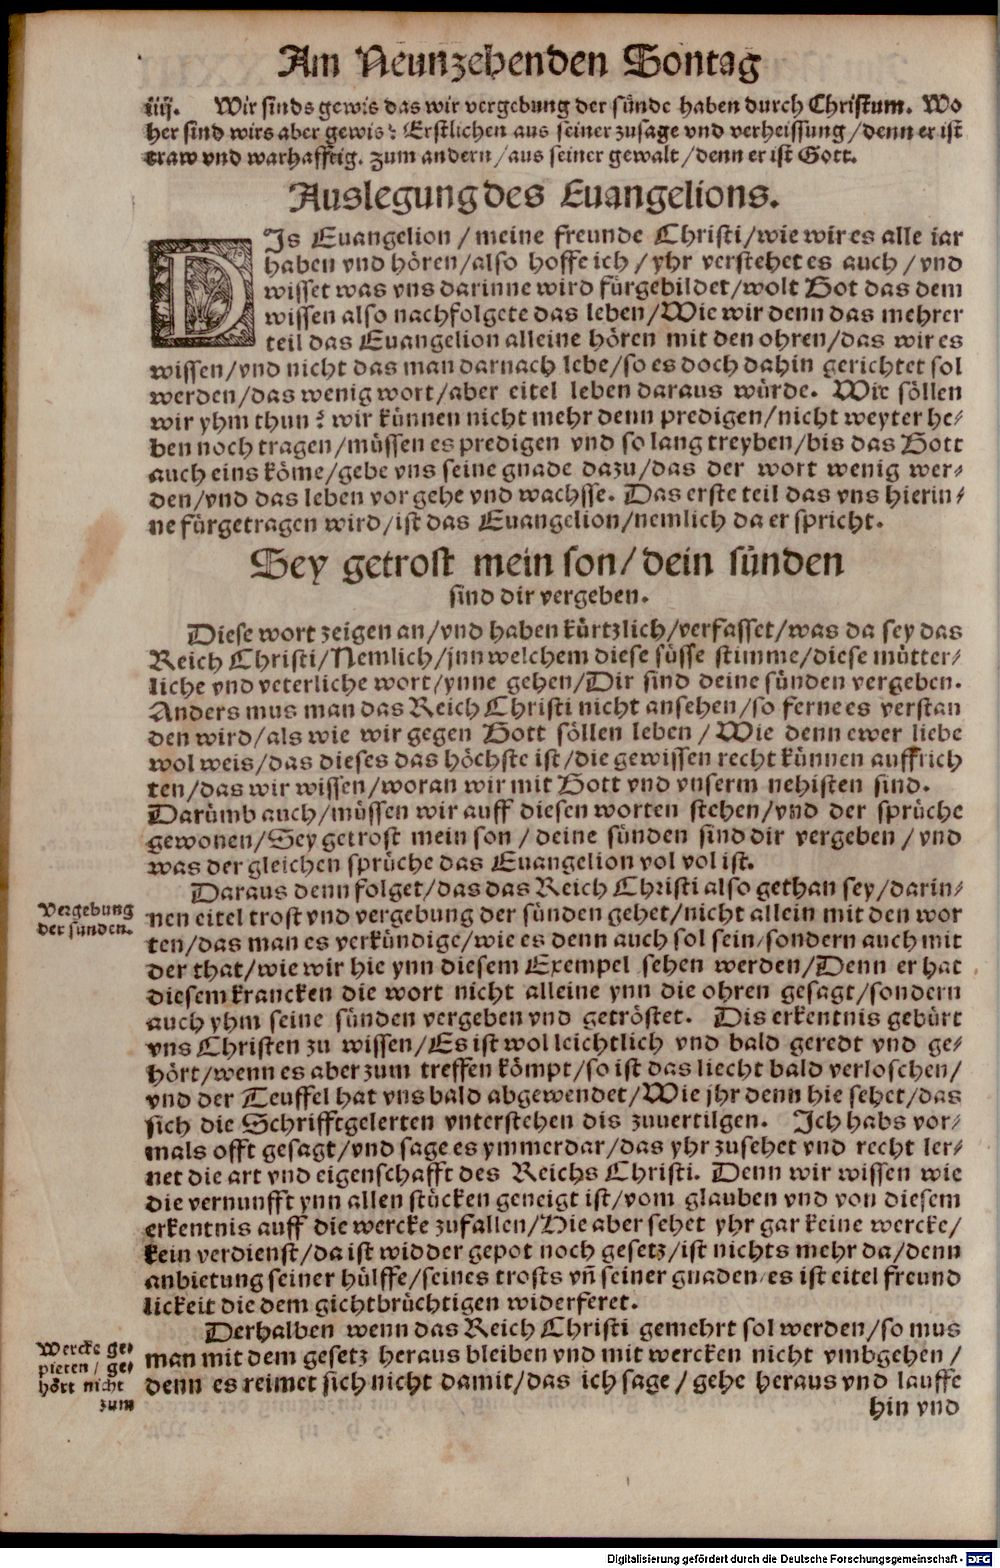 Am Neunzehenden Sontag
iiij. Wir sinds gewis das wir vergebung der sünde haben durch Christum. Wo
her sind wirs aber gewis? Erstlichen aus seiner zusage vnd verheissung /denn er ist
traw vnd warhafftig. zum andern /aus seiner gewalt /denn er ist Gott.
Auslegung des Euangelions.
DIs Euangelion / meine freunde Christi/wie wir es alle iar
haben vnd hören/also hoffe ich / yhr verstehet es auch / vnd
wisset was vns darinne wird fürgebildet/wolt Got das dem
wissen also nachfolgete das leben/Wie wir denn das mehrer
teil das Euangelion alleine hören mit den ohren/das wir es
wissen/vnd nicht das man darnach lebe/so es doch dahin gerichtet sol
werden/das wenig wort/aber eitel leben daraus würde. Wie söllen
wir yhm thun? wir künnen nicht mehr denn predigen/nicht weyter he-
ben noch tragen/müssen es predigen vnd so lang treyben/bis das Gott
auch eins köme/gebe vns seine gnade dazu/das der wort wenig wer-
den/vnd das leben vor gehe vnd wachsse. Das erste teil das vns hierin-
ne fürgetragen wird/ist das Euangelion/nemlich da er spricht.
Sey getrost mein son/dein sünden
sind dir vergeben.
Diese wort zeigen an/vnd haben kürtzlich/verfasset/was da sey das
Reich Christi/Nemlich/jnn welchem diese süsse stimme/diese mütter-
liche vnd veterliche wort/ynne gehen/Dir sind deine sünden vergeben.
Anders mus man das Reich Christi nicht ansehen/so ferne es verstan
den wird/als wie wir gegen Gott söllen leben / Wie denn ewer liebe
wol weis/das dieses das höchste ist/die gewissen recht künnen auffrich
ten/das wir wissen/woran wir mit Gott vnd vnserm nehisten sind.
Darümb auch/müssen wir auff diesen worten stehen/vnd der sprüche
gewonen/Sey getrost mein son / deine sünden sind dir vergeben / vnd
was der gleichen sprüche das Euangelion vol vol ist.
Daraus denn folget/das das Reich Christi also gethan sey/darin-
Vergebung
der sünden.
nen eitel trost vnd vergebung der sünden gehet/nicht allein mit den wor
ten/das man es verkündige/wie es denn auch sol sein/sondern auch mit
der that/wie wir hie ynn diesem Exempel sehen werden/Denn er hat
diesem krancken die wort nicht alleine ynn die ohren gesagt/sondern
auch yhm seine sünden vergeben vnd getröstet. Dis erkentnis gebürt
vns Christen zu wissen/Es ist wol leichtlich vnd bald geredt vnd ge-
hört/wenn es aber zum treffen kömpt/so ist das liecht bald verloschen/
vnd der Teuffel hat vns bald abgewendet/Wie jhr denn hie sehet/das
sich die Schrifftgelerten vnterstehen dis zuuertilgen. Ich habs vor-
mals offt gesagt/vnd sage es ymmerdar/das yhr zusehet vnd recht ler-
net die art vnd eigenschafft des Reichs Christi. Denn wir wissen wie
die vernunfft ynn allen stücken geneigt ist/vom glauben vnd von diesem
erkentnis auff die wercke zufallen/Hie aber sehet yhr gar keine wercke/
kein verdienst/da ist widder gepot noch gesetz/ist nichts mehr da/denn
anbietung seiner hülffe/seines trosts vñ seiner gnaden/es ist eitel freund
lickeit die dem gichtbrüchtigen widerferet.
Derhalben wenn das Reich Christi gemehrt sol werden/so mus
Wercke ge-
pieten / ge-
hört nicht
zum
man mit dem gesetz heraus bleiben vnd mit wercken nicht vmbgehen /
denn es reimet sich nicht damit/das ich sage / gehe heraus vnd lauffe
hin vnd
Digitalisierung gefördert durch die Deutsche Forschungsgemeinschaft - DFG